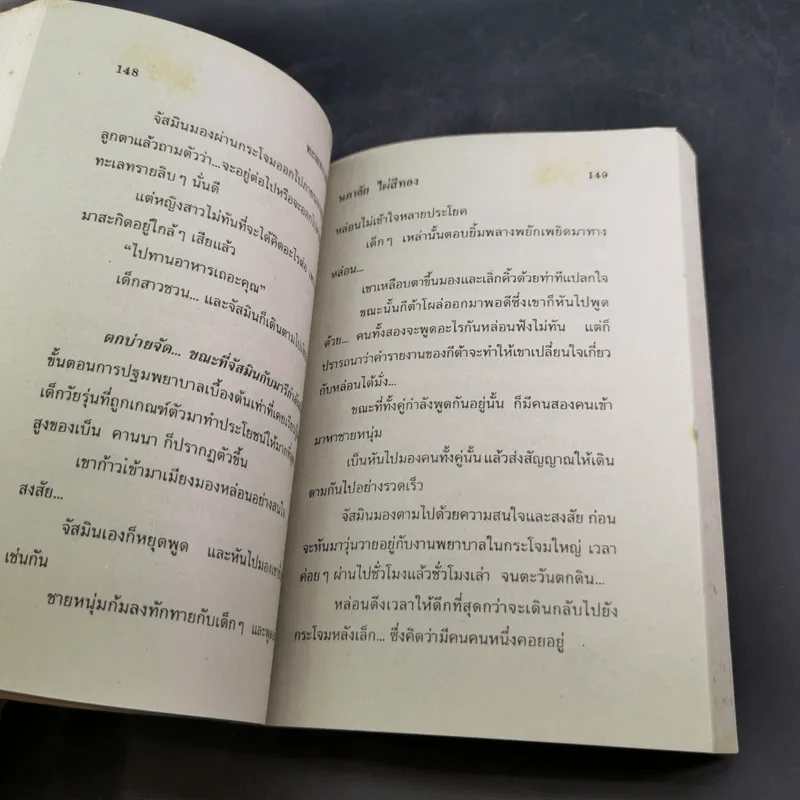 148
จัสมินมองผ่านกระโจมออกไปภายนอก
ลูกตาแล้วถามตัวว่า...จะอยู่ต่อไปหรือจะออกไป
ทะเลทรายลิบๆ นั่นดี
แต่หญิงสาวไม่ทันที่จะได้คิดอะไรต่อ
มาสะกิดอยู่ใกล้ๆ เสียแล้ว
“ไปทานอาหารเถอะคุณ”
เด็กสาวชวน... และจัสมินก็เดินตามไป
ตกบ่ายจัด... ขณะที่จัสมินกับมารีกำลัง
ขั้นตอนการปฐมพยาบาลเบื้องต้นเท่าที่เคยเรียน
เด็กวัยรุ่นที่ถูกเกณฑ์ตัวมาทำประโยชน์ให้มากที่สุด
สูงของเบ็น คานนา ก็ปรากฏตัวขึ้น
เขาก้าวเข้ามาเมียงมองหล่อนอย่างสนใจ
สงสัย...
จัสมินเองก็หยุดพูด และหันไปมอง
เช่นกัน
ชายหนุ่มก้มลงทักทายกับเด็กๆ และพูด
นดาลัย ไผ่สีทอง 149
หล่อนไม่เข้าใจหลายประโยค
เด็กๆ เหล่านั้นตอบยิ้มพลางพยักเพยิดมาทาง
หล่อน...
เขาเหลือบตาขึ้นมองและเลิกคิ้วด้วยท่าทีแปลกใจ
ขณะนั้นกีต้าโผล่ออกมาพอดีซึ่งเขาก็หันไปพูด
ด้วย... คนทั้งสองจะพูดอะไรกันหล่อนฟังไม่ทัน แต่ก็
ปรารถนาว่าคำรายงานของกีต้าจะทำให้เขาเปลี่ยนใจเกี่ยว
กับหล่อนได้มั่ง...
ขณะที่ทั้งคู่กำลังพูดกันอยู่นั้น ก็มีคนสองคนเข้า
มาหาชายหนุ่ม
เบ็นหันไปมองคนทั้งคู่นั้น แล้วส่งสัญญาณให้เดิน
ตามกันไปอย่างรวดเร็ว
จัสมินมองตามไปด้วยความสนใจและสงสัย ก่อน
จะหันมาวุ่นวายอยู่กับงานพยาบาลในกระโจมใหญ่ เวลา
ค่อยๆ ผ่านไปชั่วโมงแล้วชั่วโมงเล่า จนตะวันตกดิน...
หล่อนดึงเวลาให้ดึกที่สุดกว่าจะเดินกลับไปยัง
กระโจมหลังเล็ก... ซึ่งคิดว่ามีคนคนหนึ่งคอยอยู่